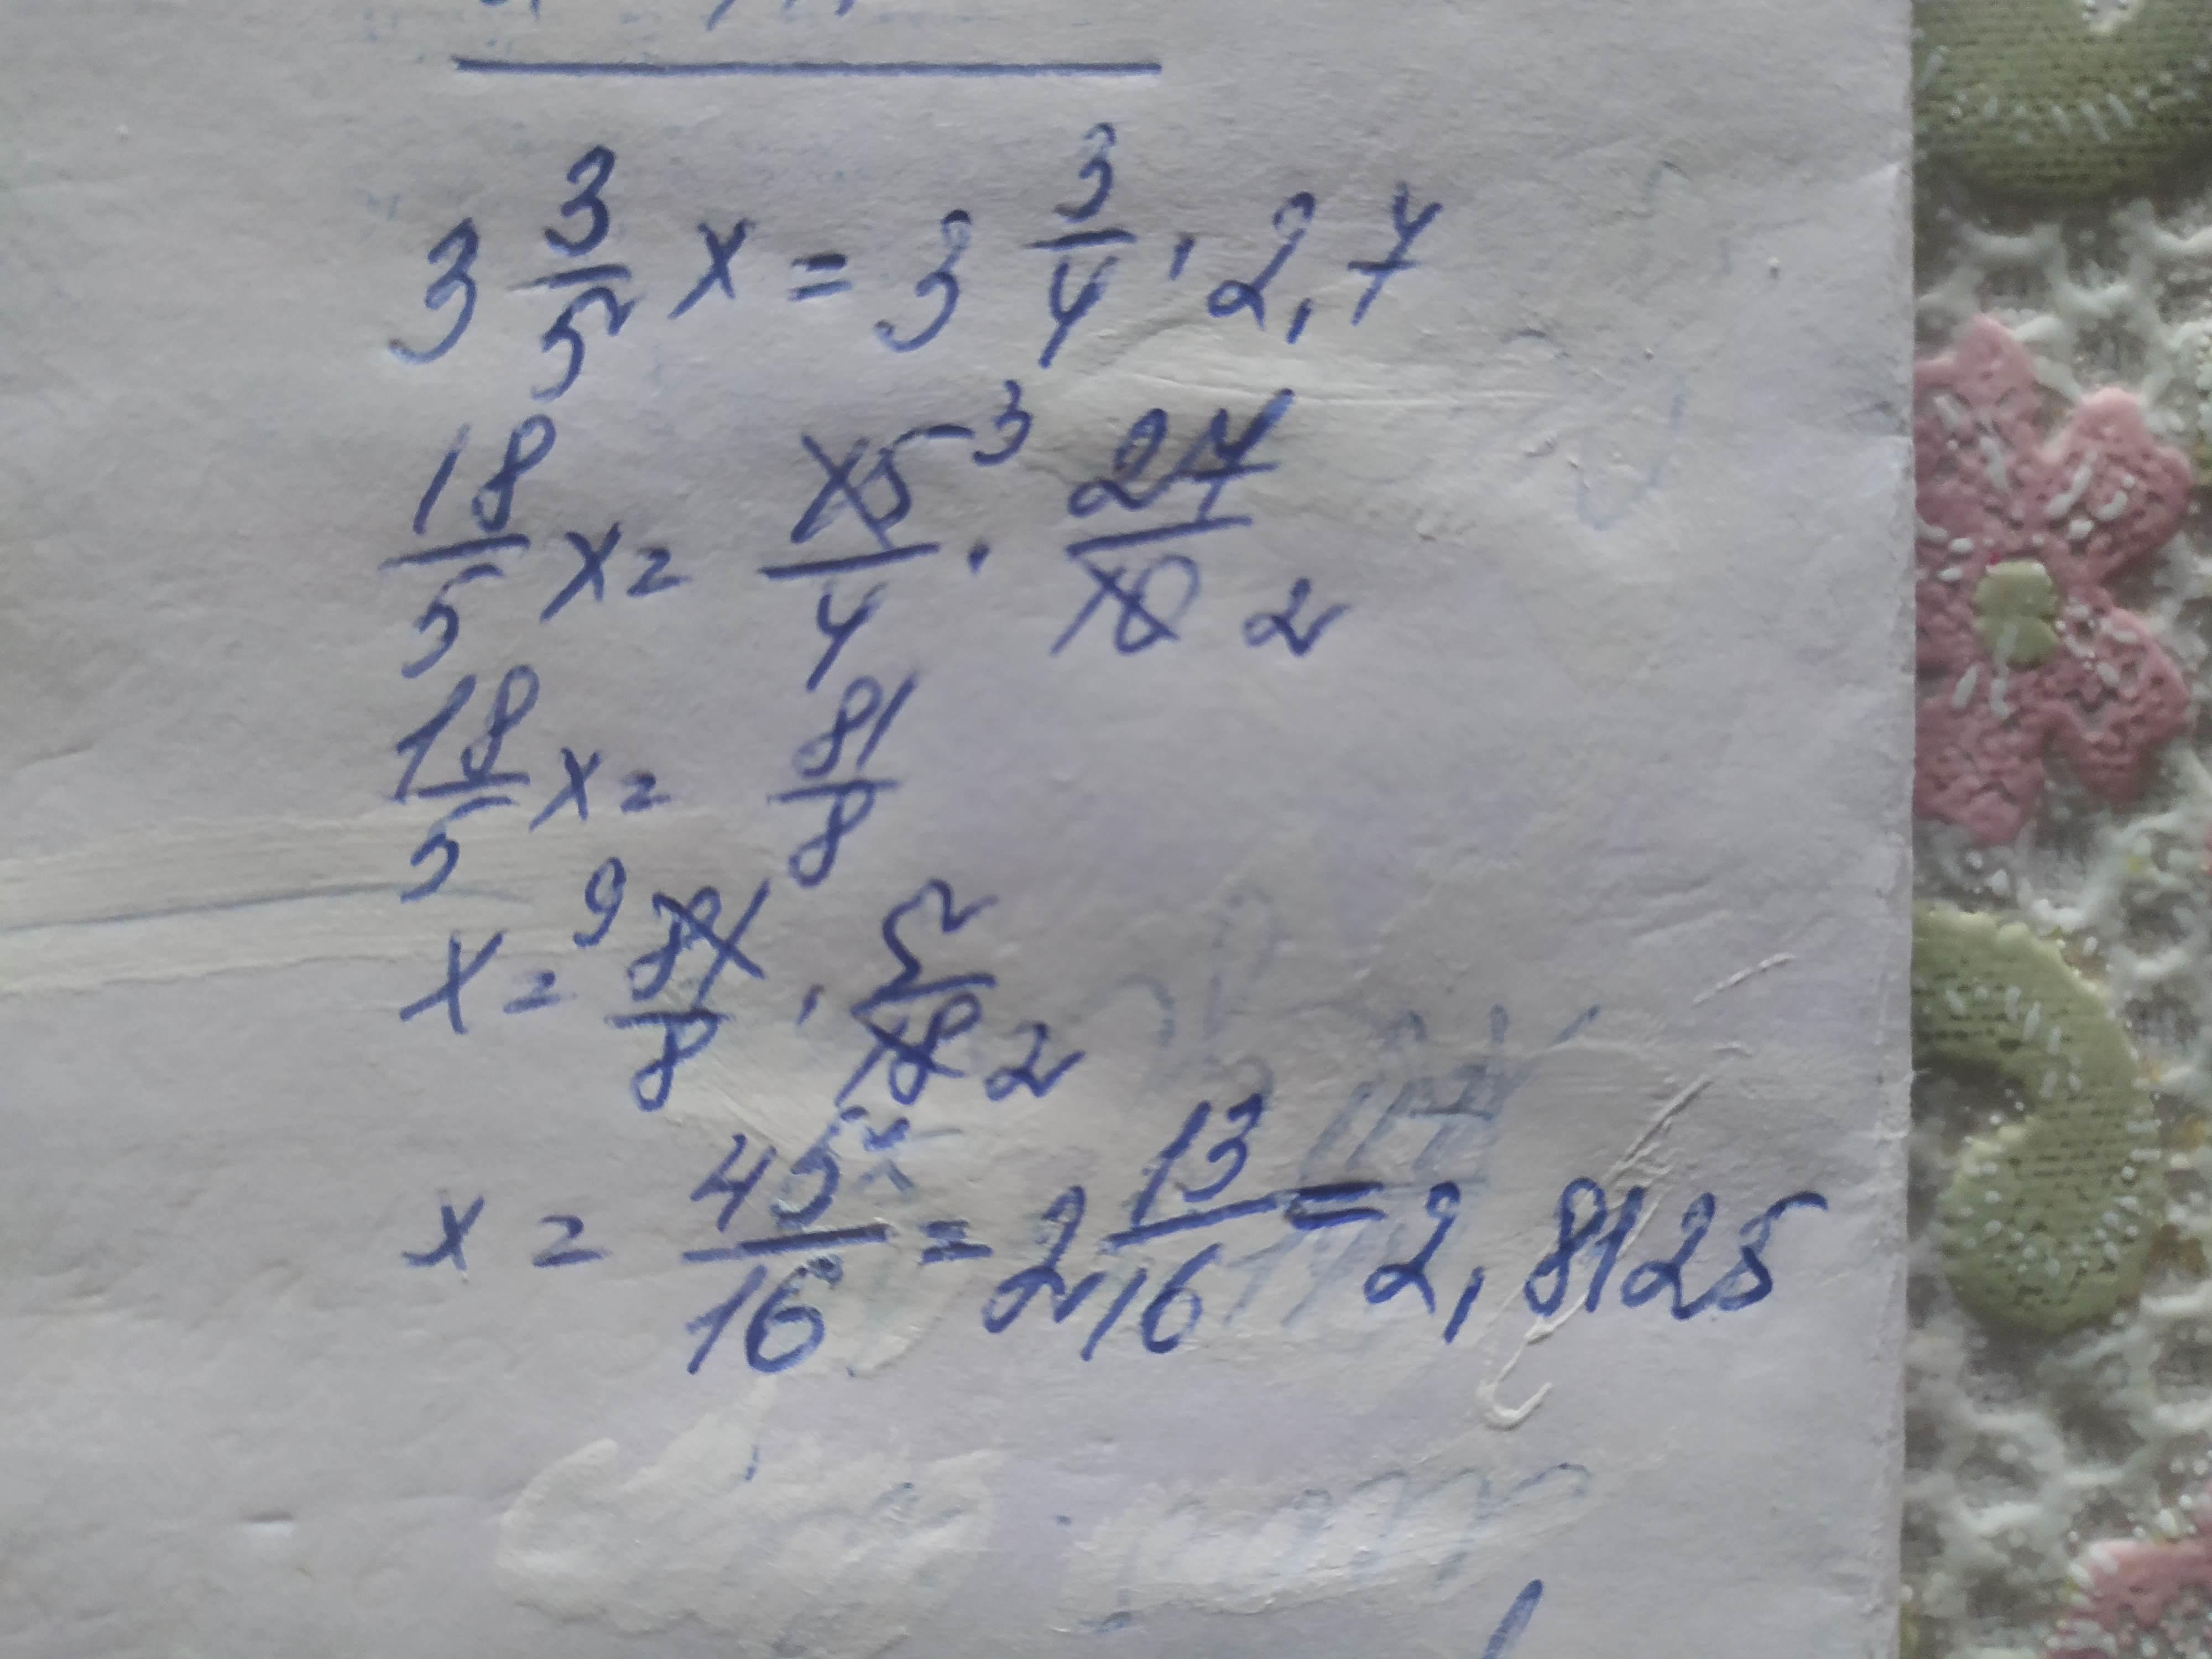 3 3/5 x = 3 3/4 · 2,7
18/5 x = 15 3/4 · 27/10 2
18/5 x = 81/8
x = 9 81/8 · 5/18 2
x = 45/16 = 2 13/16 = 2,8125